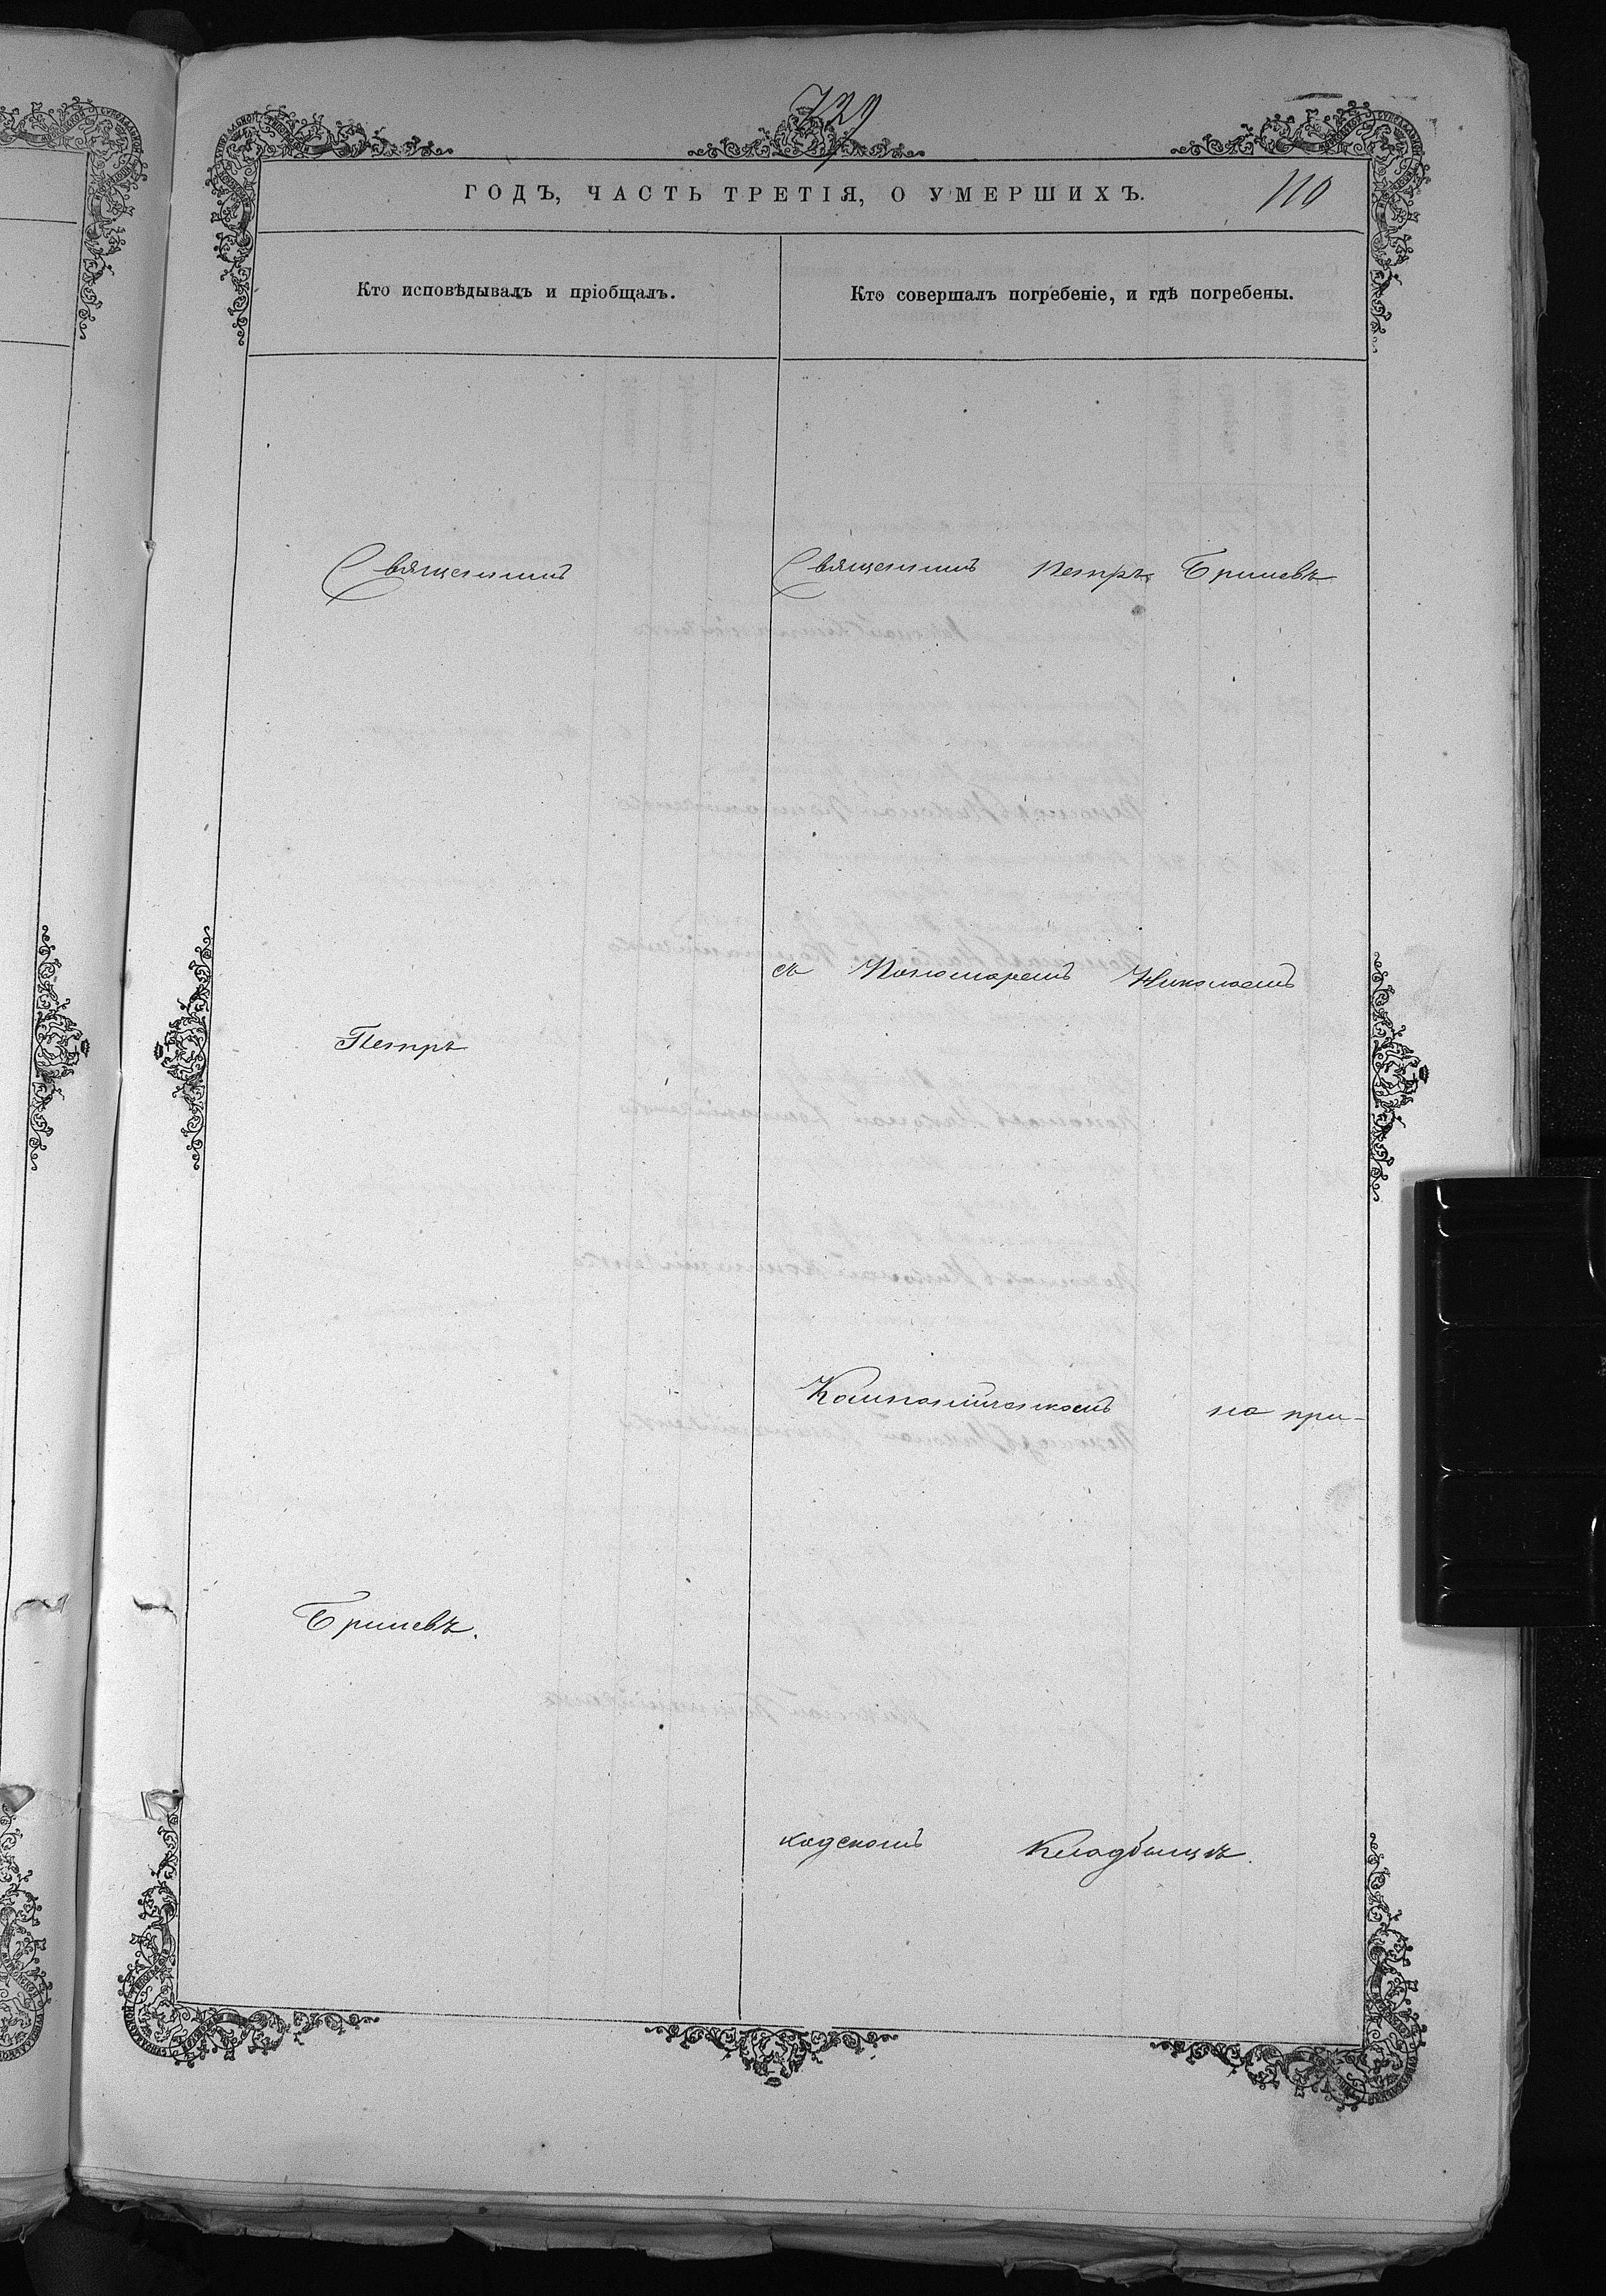 729
ГОДЪ, ЧАСТЬ ТРЕТІЯ, О УМЕРШИХЪ.
110
Кто исповѣдывалъ и пріобщалъ.
Кто совершалъ погребеніе, и гдѣ погребены.
Священникъ
Петръ
Бриневъ.
Священникъ Петръ Бриневъ
съ Пономаремъ Николаемъ
на при-
ходскомъ Кладбищѣ.